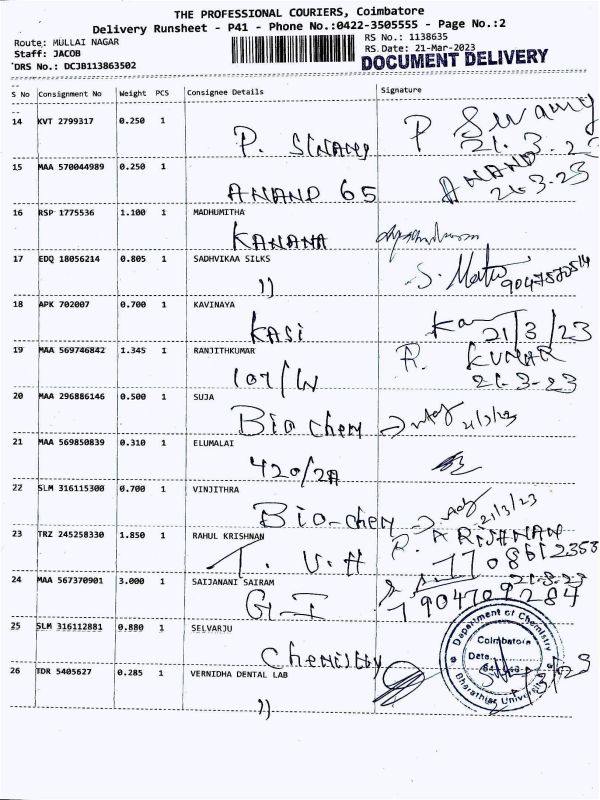 THE PROFESSIONAL COURIERS, Coimbatore
Delivery Runsheet - P41 - Phone No.:0422-3505555 - Page No.:2
Route: MULLAI NAGAR
RS No.: 1138635
Staff: JACOB
RS Date: 21-Mar-2023
DRS No.: DCJB113863502
DOCUMENT DELIVERY
S No Consignment No Weight PCS Consignee Details Signature
14 KVT 2799317 0.250 1
P. SIWAMY P Swamy
21.3.23
15 MAA 570044989 0.250 1
ANAND 65 ANAND
21.3.23
16 RSP 1775536 1.100 1 MADHUMITHA
KANANA
17 EDQ 18056214 0.805 1 SADHVIKAA SILKS
11 S.
18 APK 702007 0.700 1 KAVINAYA
KASI 21/3/23
19 MAA 569746842 1.345 1 RANJITHKUMAR R. KUMAR
21.3-23
20 MAA 296886146 0.500 1 SUJA
Bio chem 21/3/23
21 MAA 569850839 0.310 1 ELUMALAI
420/2A
22 SLM 316115300 0.700 1 VINJITHRA
Bio-chem 21/3/23
23 TRZ 245258330 1.850 1 RAHUL KRISHNAN
T. V. H 7708612353
24 MAA 567370901 3.000 1 SAIJANANI SAIRAM 21.3.23
G-I 7904709284
25 SLM 316112881 0.880 1 SELVARJU
Chemistry
Department of Chemistry
Coimbatore
Date
Bharathiar University
26 TDR 5405627 0.285 1 VERNIDHA DENTAL LAB
11